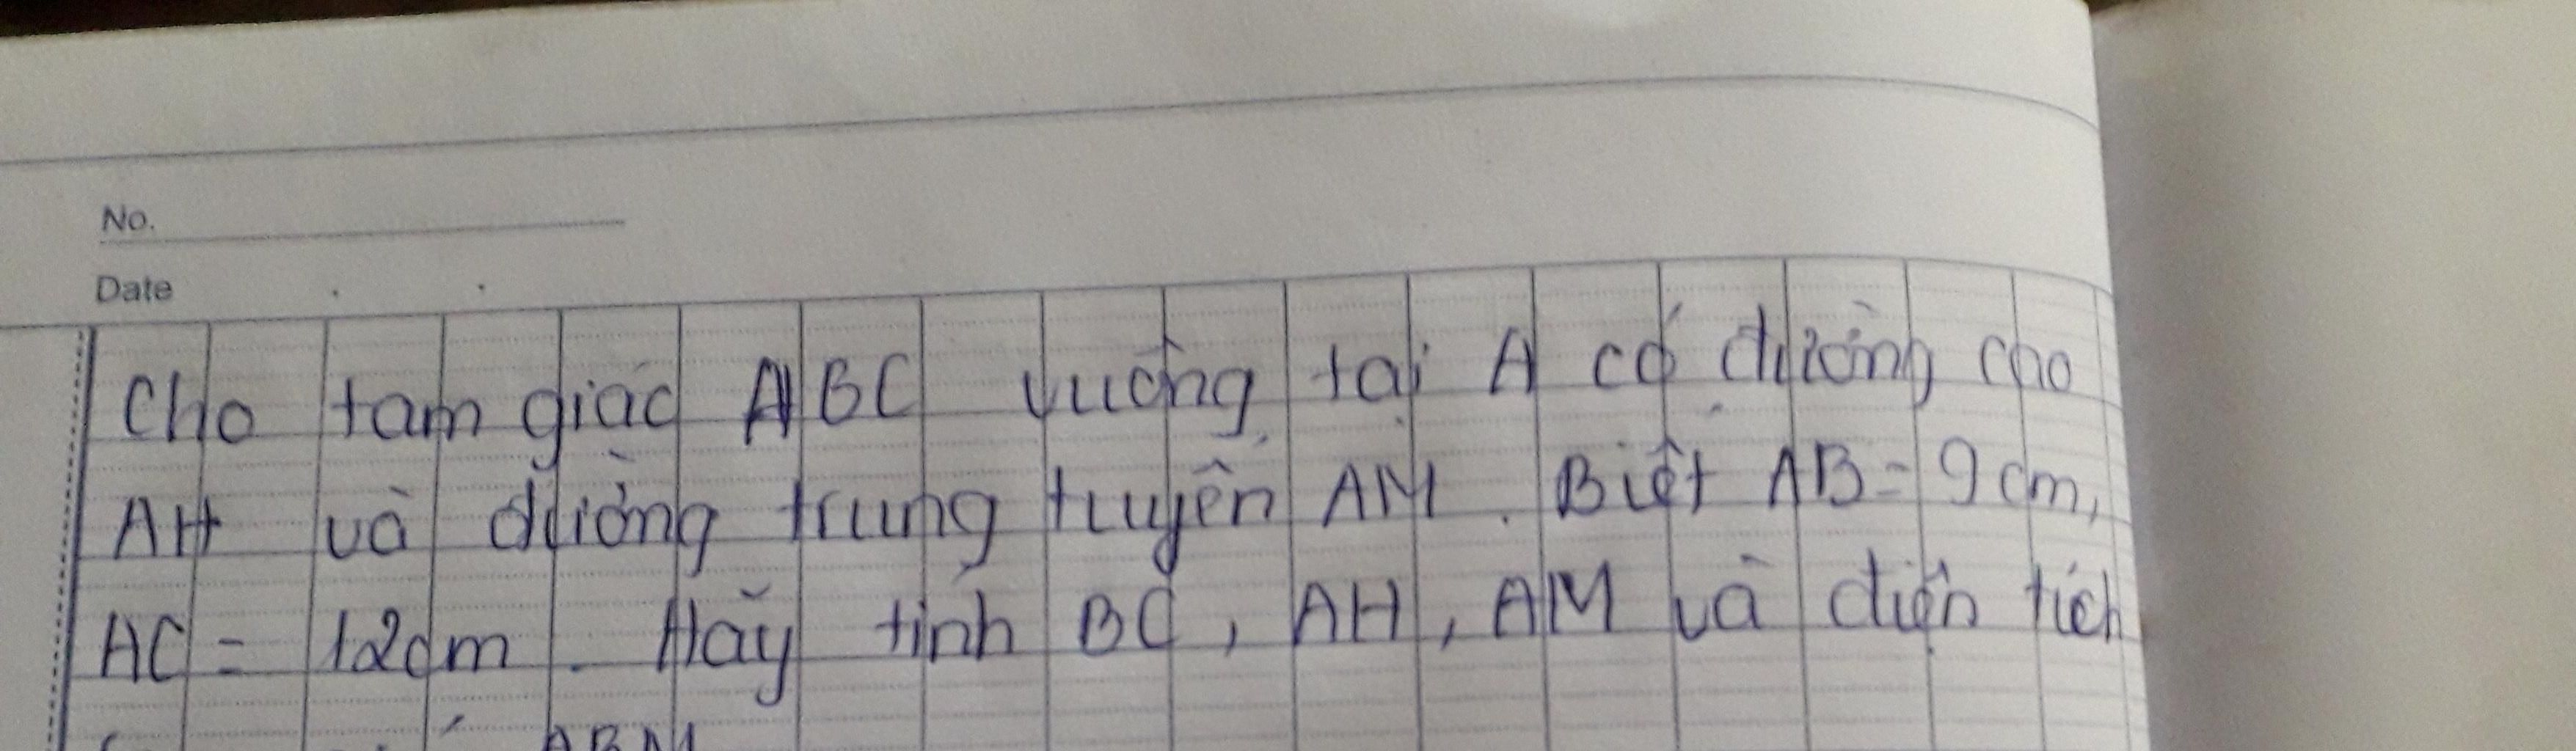 No.
Date
Cho tam giác ABC vuông tại A có đường cho
AH và đường trung tuyến AM. Biết AB = 9cm,
AC = 12cm. Hãy tính BC, AH, AM và diện tích
ABM